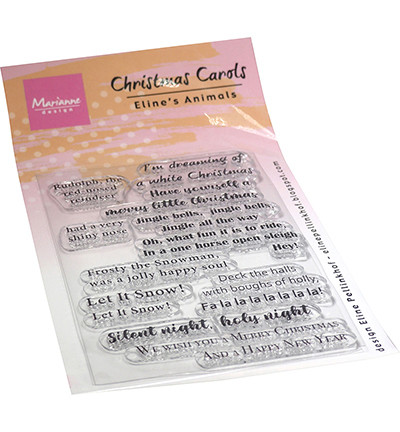 Marianne
design
Christmas Carols
Eline's Animals
Rudolph, the
red-nosed
reindeer
had a very
shiny nose
I'm dreaming of
a white Christmas
Have yourself a
merry little Christmas
Jingle bells, Jingle bells
Jingle all the way
Oh, what fun it is to ride,
In a one horse open sleigh
Hey!
Frosty the Snowman
was a jolly happy soul
Let It Snow!
Let It Snow!
Deck the halls
with boughs of holly,
Fa la la la la la la la!
Silent night, holy night
We wish you a Merry Christmas
And a Happy New Year
design Eline Pellinkhof - elinepellinkhof.blogspot.com